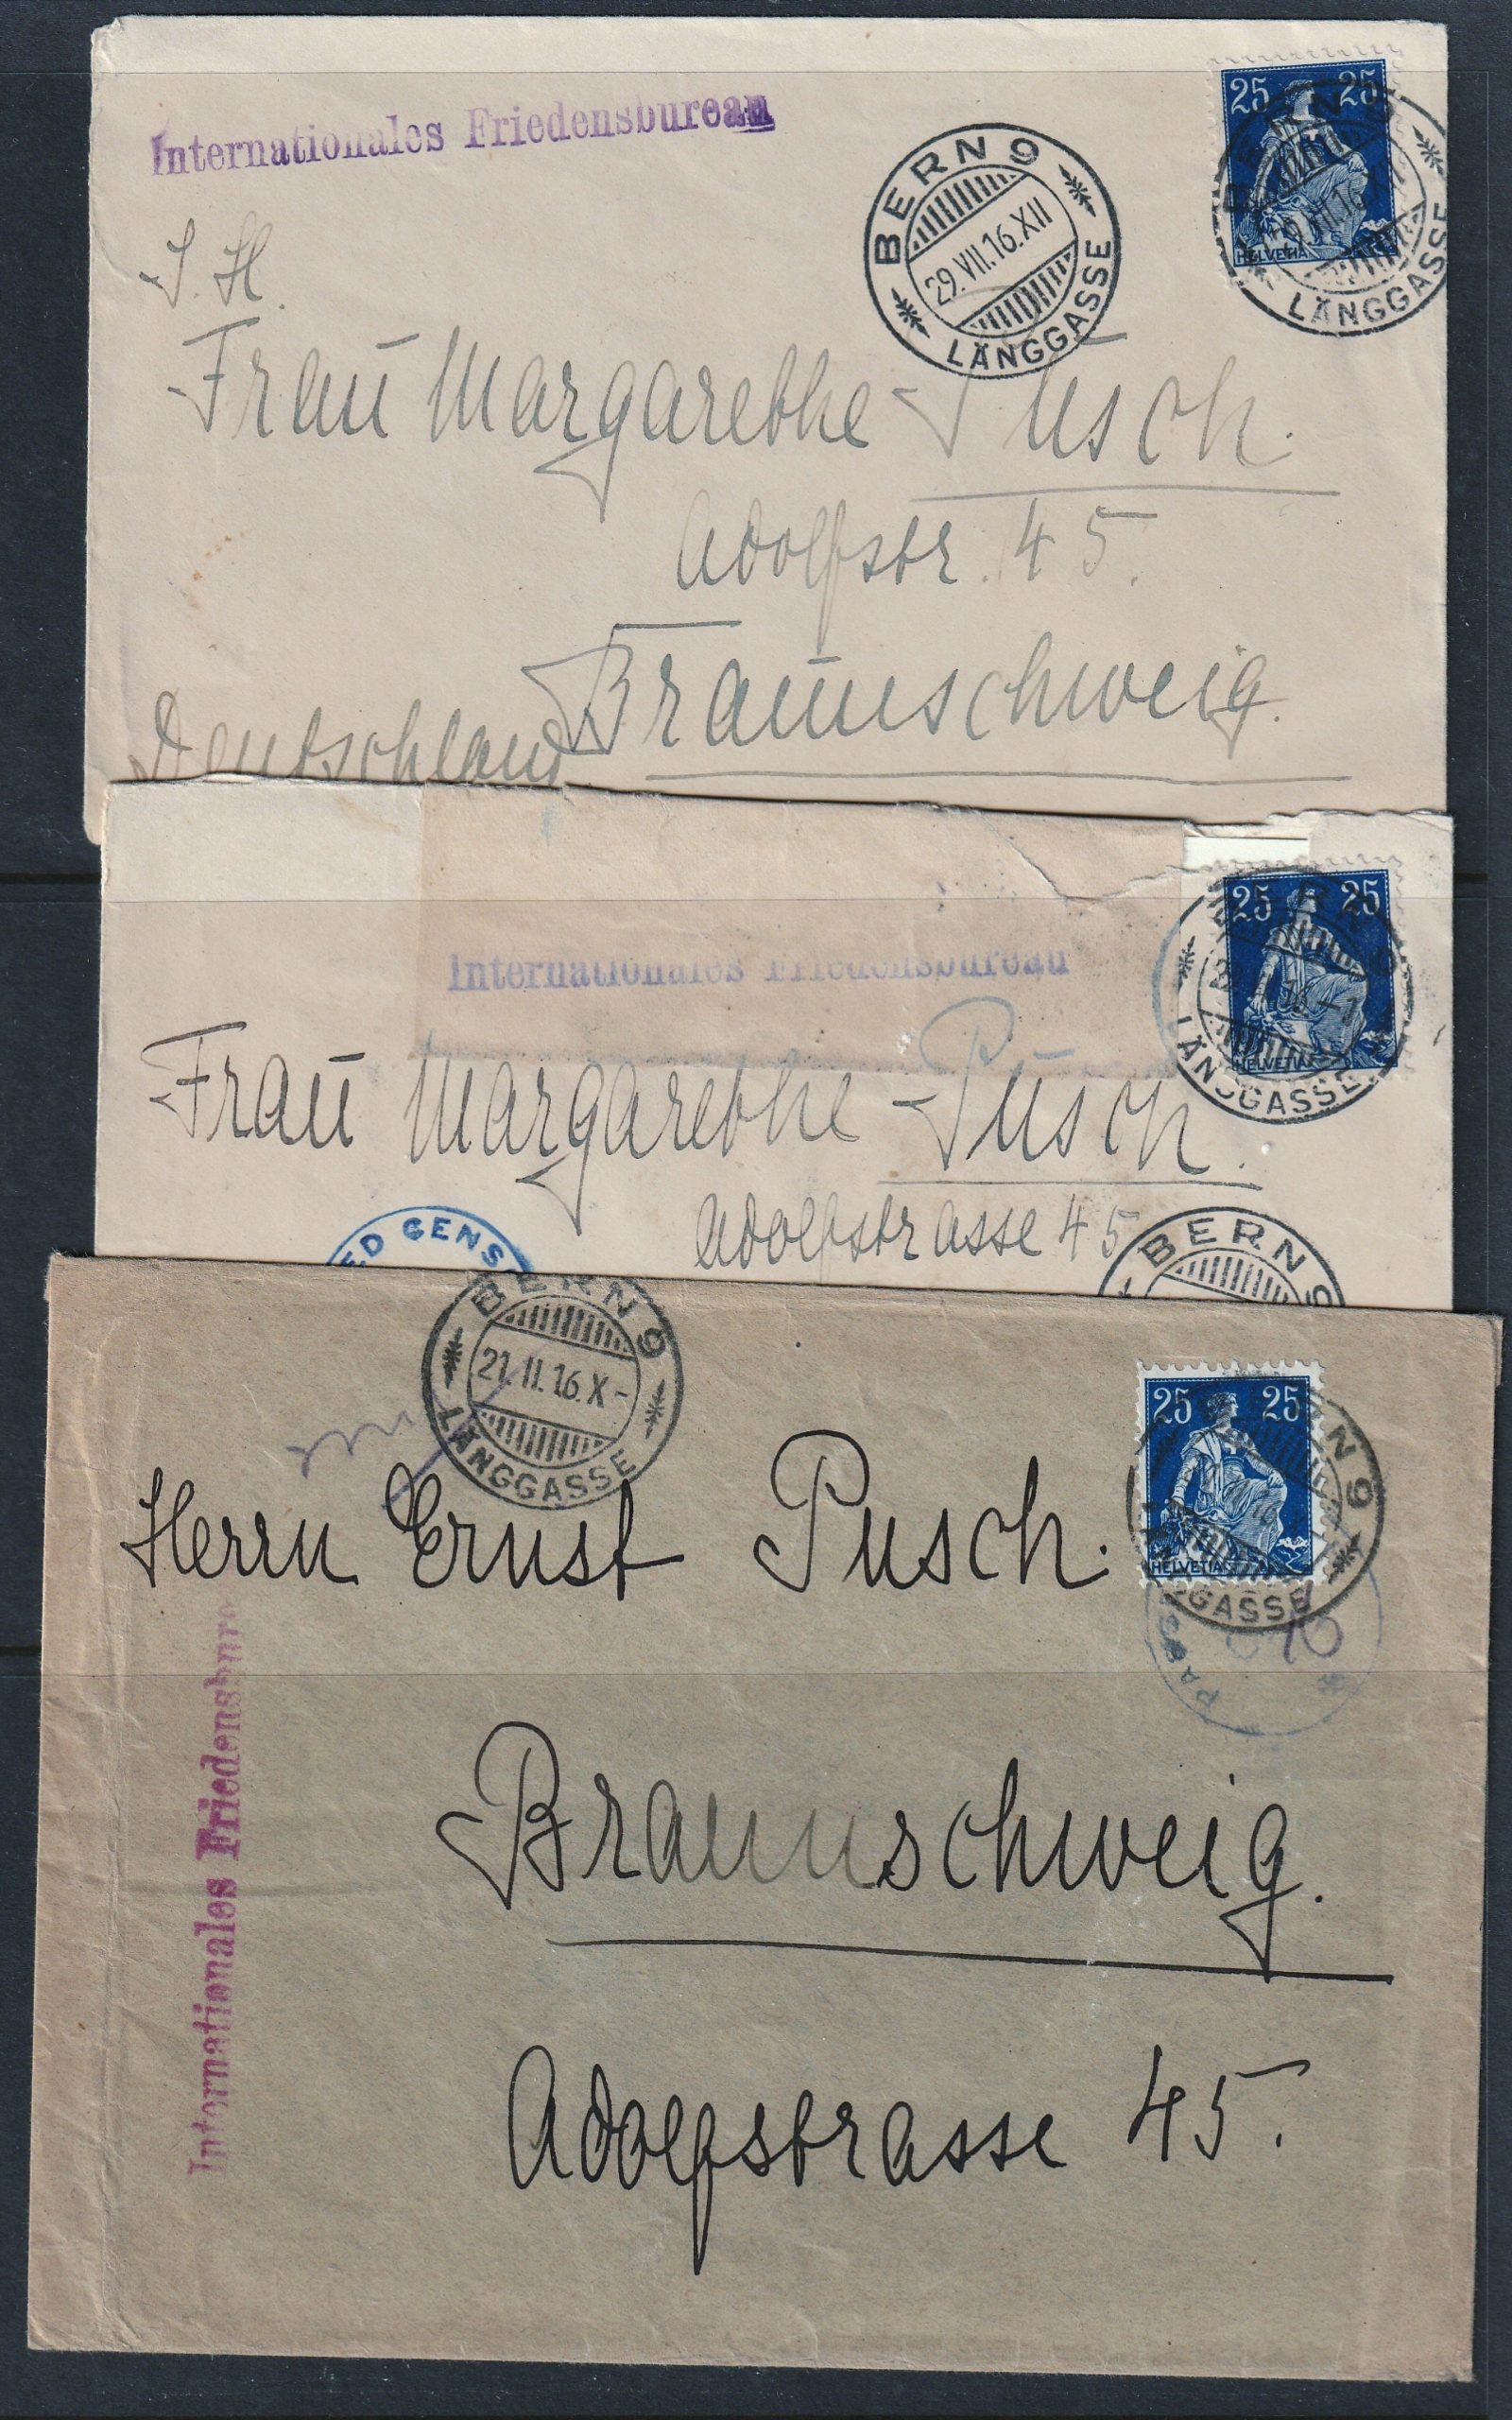 Internationales Friedensbureau
25 25
HELVETIA
BERN 9
29.VII.16.XII
LÄNGGASSE
LÄNGGASSE
S. H.
Frau Margarethe Pusch.
Adolfstr. 45.
Braunschweig.
Deutschland
Internationales Friedensbureau
25 25
HELVETIA
LÄNGGASSE
Frau Margarethe Pusch.
Adolfstrasse 45
ED CENS
BERN 9
BERN 9
21.II.16.X-
LÄNGGASSE
25 25
HELVETIA
N 9
GASSE
PASS
Herrn Ernst Pusch.
Internationales Friedensbure
Braunschweig.
Adolfstrasse 45.